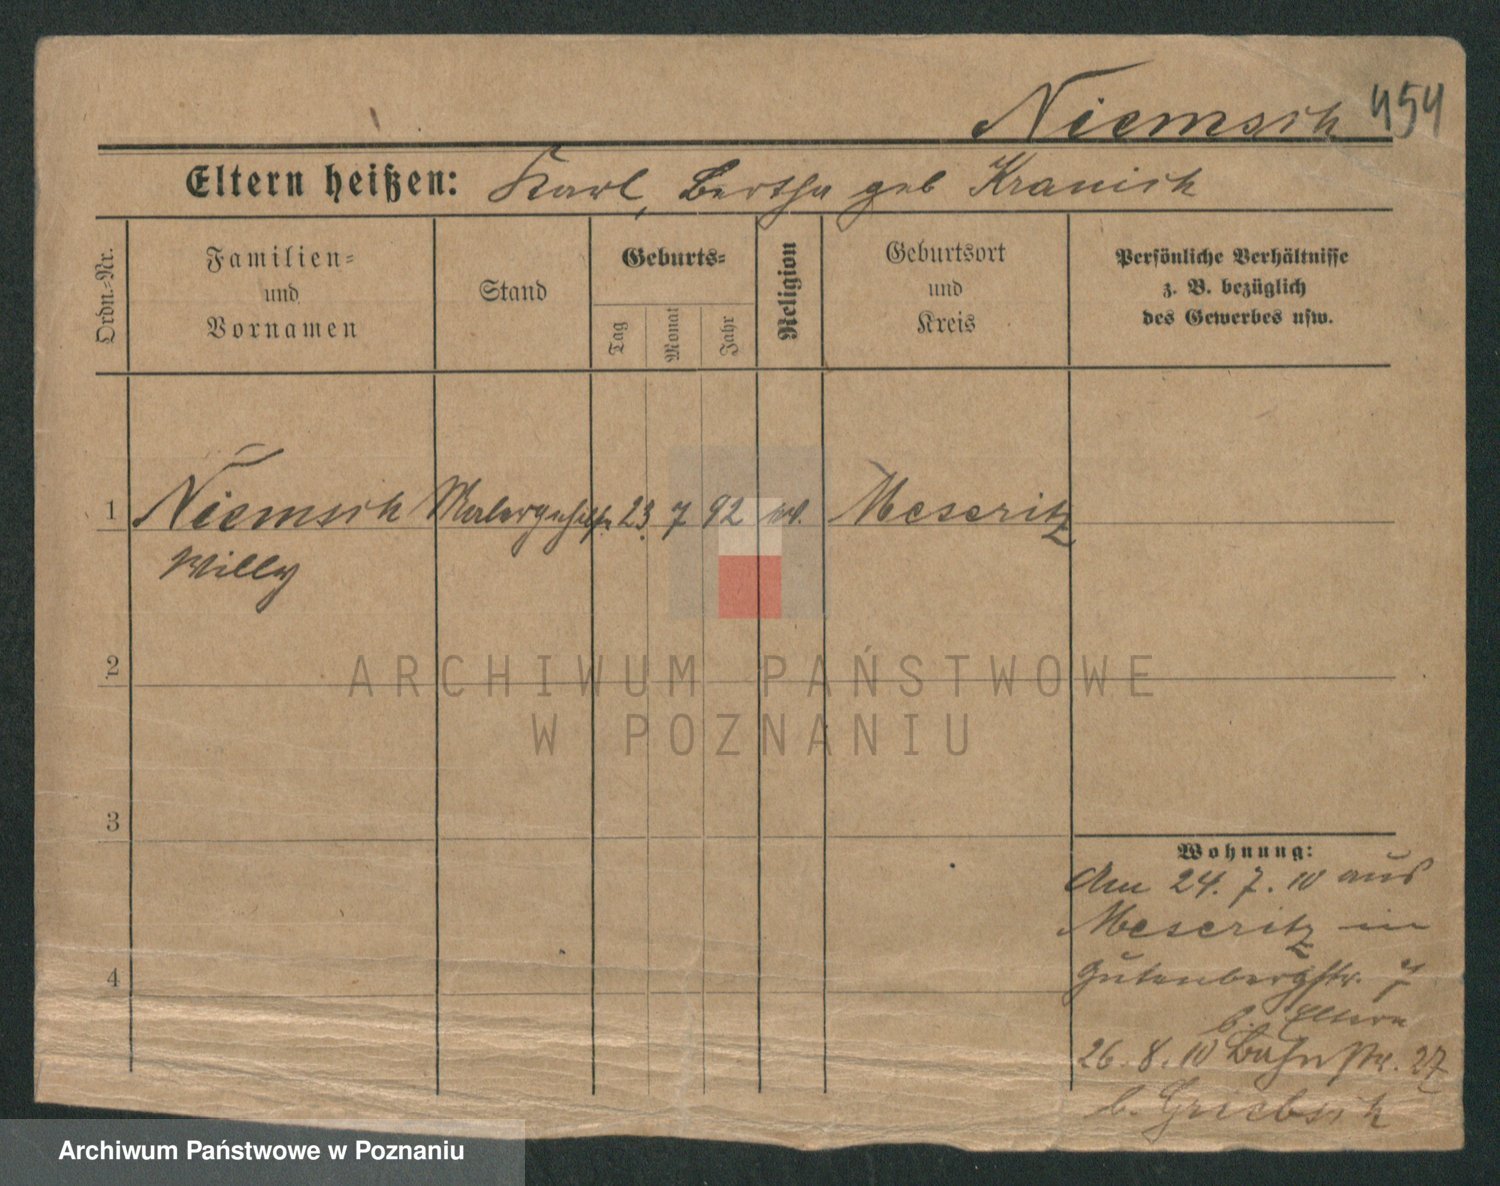 Niemsch 454
Eltern heißen: Karl, Bertha geb Kranich
Ordn.-Nr.
Familien-
und
Vornamen
Stand
Geburts-
Tag
Monat
Jahr
Religion
Geburtsort
und
Kreis
Persönliche Verhältnisse
z. B. bezüglich
des Gewerbes usw.
1 Niemsch Malergehilfe 23. 7 92 ev. Meseritz
Willy
2
ARCHIWUM PAŃSTWOWE
W POZNANIU
3
Wohnung:
Am 24. 7. 10 aus
Meseritz in
4
Gutenbergstr. 7
b. Eltern
26. 8. 10 Bahnstr. 27
b. Griebsch
Archiwum Państwowe w Poznaniu